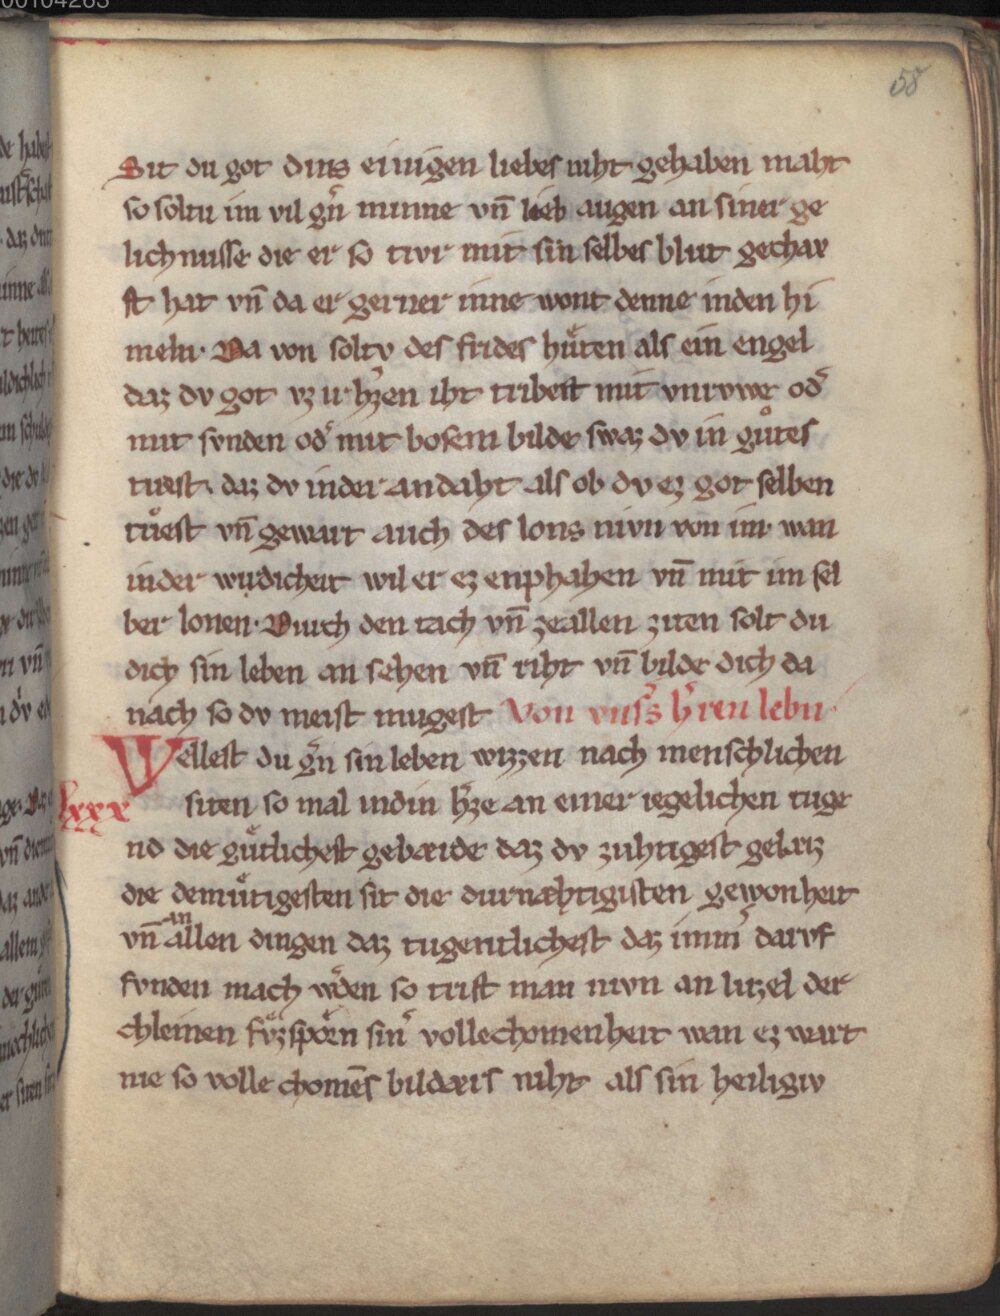 58
Sit du got dins einigen liebes niht gehaben maht
so soltu im vil gͤn minne vn̄ lieb augen an siner ge
lichnusse die er so tivr mit sin selbes blut gechav
ft hat vn̄ da er gerner inne wont denne inden hi
meln. Da von soltv des frides hůten als ein engel
daz dv got vz ir hꝛ̄zen iht tribest mit vnrvwe od͛
mit svnden od͛ mit bosem bilde swaz dv in gůtes
tuest. daz dv inder andaht als ob dv ez got selben
tůest vn̄ gewart auch des lons nivn von im. wan
inder wirdicheit wil er ez enphahen vn̄ mit im sel
ber lonen. Durch den tach vn̄ zeallen ziten solt du
dich sin leben an sehen vn̄ riht vn̄ bilde dich da
nach so dv meist mugest Von vnſs͛ h͛ren lebn
Wellest du g͛n sin leben wizzen nach menschlichen
lxxx siten so mal indin h͛ze an einer iegelichen tuge
nd die gůtlichest gebæide daz dv zuhtigest gelæz
die demůtigesten sit die durnæhtigisten gewonheit
vn̄ an allen dingen daz tugentlichest daz imm͛ darvf
fvnden mach w͛den so trist man nivn an luzel der
chleinen fvͤzsporn sin͛ vollechomenheit wan ez wart
nie so volle chomēs bildæris niht als sin heiligiv